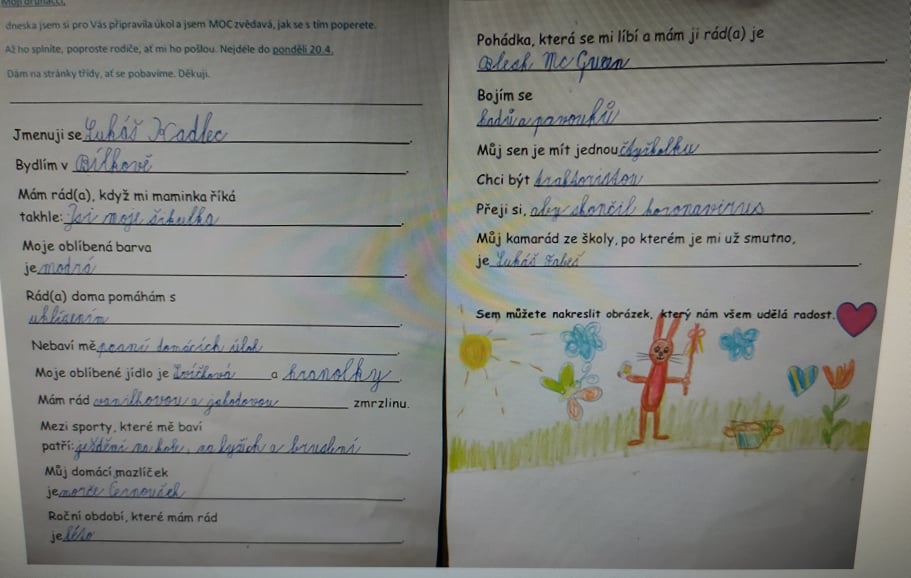 Moji druháčci,
dneska jsem si pro Vás připravila úkol a jsem MOC zvědavá, jak se s tím poperete.
Až ho splníte, poproste rodiče, ať mi ho pošlou. Nejdéle do pondělí 20.4.
Dám na stránky třídy, ať se pobavíme. Děkuji.
Jmenuji se Lukáš Kadlec.
Bydlím v Bílkově.
Mám rád(a), když mi maminka říká
takhle: Jsi moje šikulka.
Moje oblíbená barva
je modrá.
Rád(a) doma pomáhám s
uklízením.
Nebaví mě psaní domácích úloh.
Moje oblíbené jídlo je svíčková a hranolky.
Mám rád vanilkovou a jahodovou zmrzlinu.
Mezi sporty, které mě baví
patří: ježdění na kole, na lyžích a bruslení.
Můj domácí mazlíček
je morče.
Roční období, které mám rád
je léto.
Pohádka, která se mi líbí a mám ji rád(a) je
Blesk Mc Queen.
Bojím se
hadů a pavouků.
Můj sen je mít jednou čtyřkolku.
Chci být traktoristou.
Přeji si, aby skončil koronavirus.
Můj kamarád ze školy, po kterém je mi už smutno,
je Lukáš.
Sem můžete nakreslit obrázek, který nám všem udělá radost.